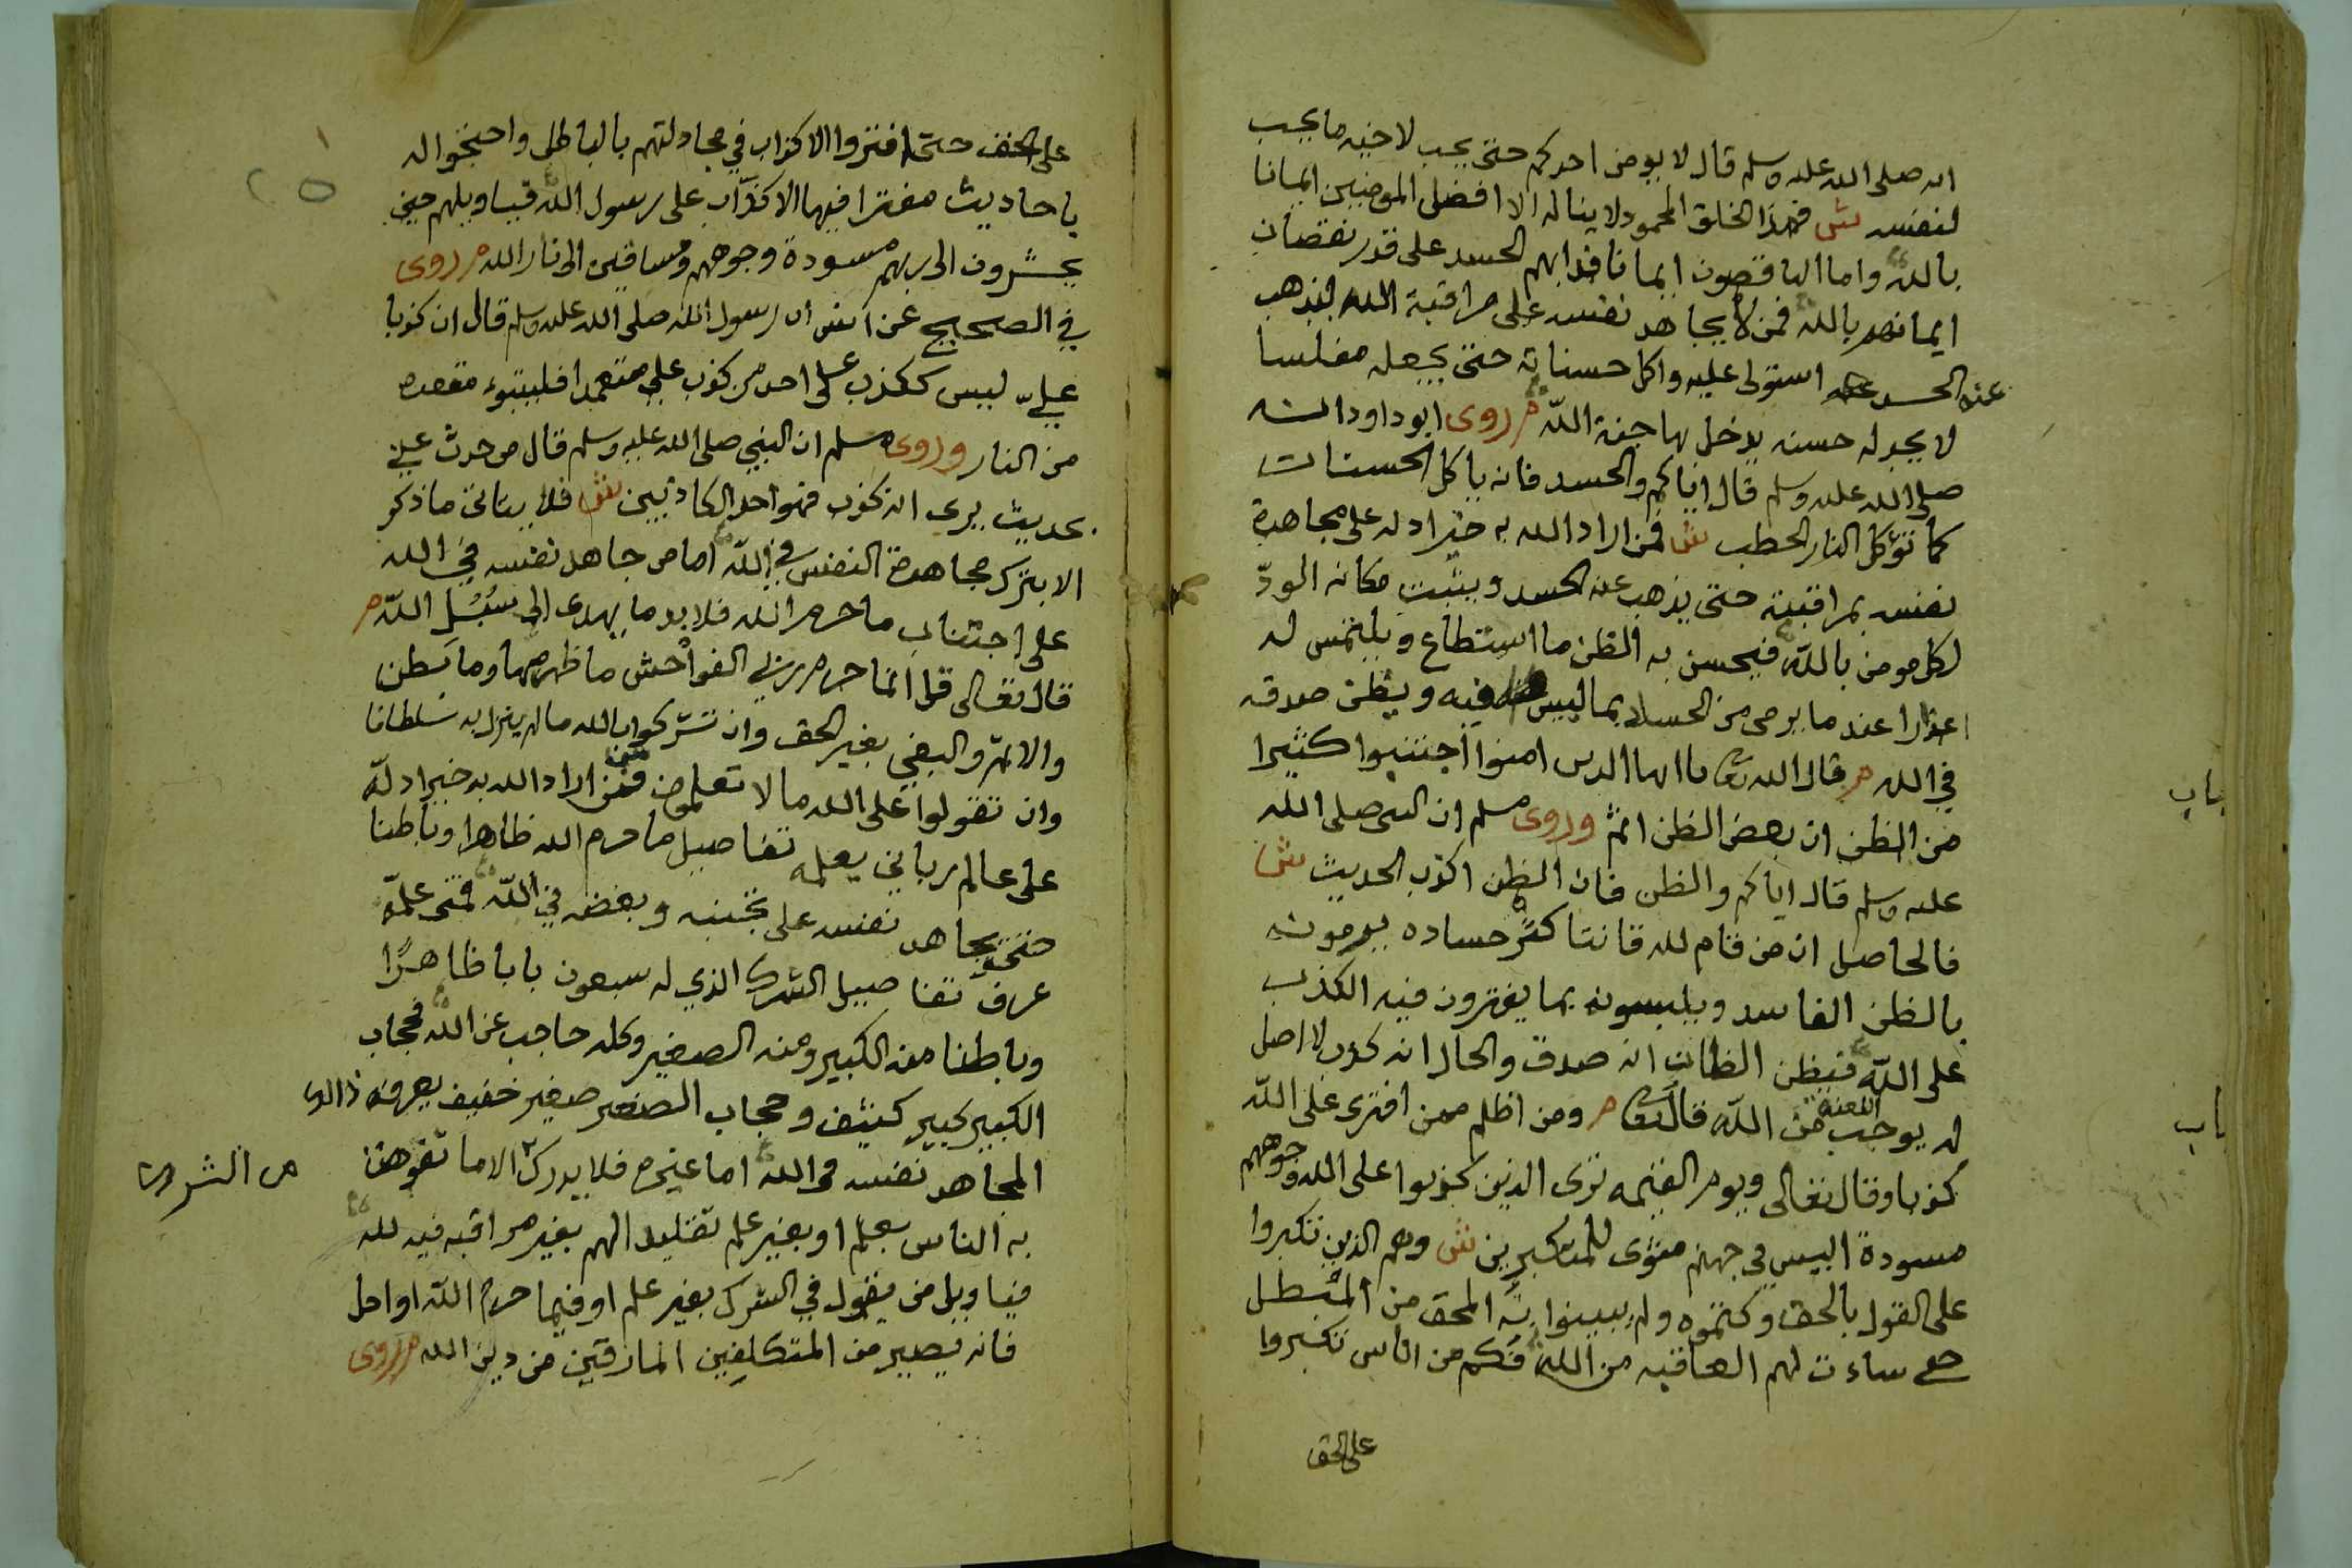 انه صلى الله عليه وسلم قال لا يومن احدكم حتى يحب لاخيه ما يحب
لنفسه ش فهذا الخلق المحمود لا يناله الا افضل المومنين ايمانا
بالله واما الناقصون ايمانا فدابهم الحسد على قدر نقصان
ايمانهم بالله فمن لا يجاهد نفسه على مراقبة الله ليذهب
عنه الحسد استولى عليه واكل حسناته حتى يجعله مفلسا
لا يجد له حسنه يدخل بها جنة الله م روى ابو داود انه
صلى الله عليه وسلم قال اياكم والحسد فانه ياكل الحسنات
كما تؤكل النار الحطب ش فمن اراد الله به خيرا دله على مجاهدة
نفسه بمراقبته حتى يذهب عنه الحسد ويثبت مكانه الودّ
لكل مومن بالله فيحسن به الظن ما استطاع ويلتمس له
اعذارا عند ما يرمى من الحساد بما ليس فيه ويظن صدقه
في الله م قال الله تعا ياايها الدين امنوا اجتنبوا كثيرا
من الظن ان بعض الظن اثم وروى مسلم ان النبي صلى الله
عليه وسلم قال اياكم والظن فان الظن اكذب الحديث ش
فالحاصل ان من قام لله قانتا كثر حساده يرمونه
بالظن الفاسد ويلبسونه بما يفترون فيه الكذب
على الله فيظن الظان انه صدق والحال انه كذب لا اصل
له يوجب اللعنة من الله قال تعا م ومن اظلم ممن افترى على الله
كذبا وقال تعالى ويوم القيمه ترى الذين كذبوا على الله وجوههم
مسودة اليس في جهنم مثوى للمتكبرين ش وهم الذين تكبروا
على القول بالحق وكتموه ولم يبينوا المحق من المبطل
ساءت لهم العاقبه من الله فكم من اناس تكبروا
على الحق
باب
باب
على الحق حتى افتروا الاكذاب في مجادلتهم بالباطل واحتجوا له
باحاديث مفترا فيها الاكذاب على رسول الله فيا ويلهم حين
يحشرون الى ربهم مسودة وجوههم ومساقين الى نار الله م روى
في الصحيح عن انس ان رسول الله صلى الله عليه وسلم قال ان كذبا
عليّ ليس ككذب على احد من كذب علي متعمدا فليتبوء مقعده
من النار وروى مسلم ان النبي صلى الله عليه وسلم قال من حدث عني
بحديث يرى انه كذب فهو احد الكاذبين ش فلا يتاتى ما ذكر
الا بترك مجاهدة النفس في الله اما من جاهد نفسه في الله
على اجتناب ما حرم الله فلا بد ما يهدى الى سبل الله م
قال تعالى قل انما حرم ربي الفواحش ما ظهر منها وما بطن
والاثم والبغي بغير الحق وان تشركوا بالله ما لم ينزل به سلطانا
وان تقولوا على الله ما لا تعلمون فمن اراد الله به خيرا دله
على عالم رباني يعلمه تفاصيل ما حرم الله ظاهرا وباطنا
حتى يجاهد نفسه على تجنبه وبغضه في الله فمتى علمه
عرف تفاصيل الشرك الذي له سبعون بابا ظاهرا
وباطنا منه الكبير ومنه الصغير وكله حاجب عن الله فحجاب
الكبير كبير كثيف وحجاب الصغير صغير خفيف يعرفه
المجاهد نفسه في الله اما غيره فلا يدرك الا ما تفوهت
به الناس بعلم او بغير علم تقليدا لهم بغير مراقبه فيه لله
فيا ويل من يقول في الشرك بغير علم او فيما حرم الله او احل
فانه يصير من المتكلفين المارقين من دين الله م روى